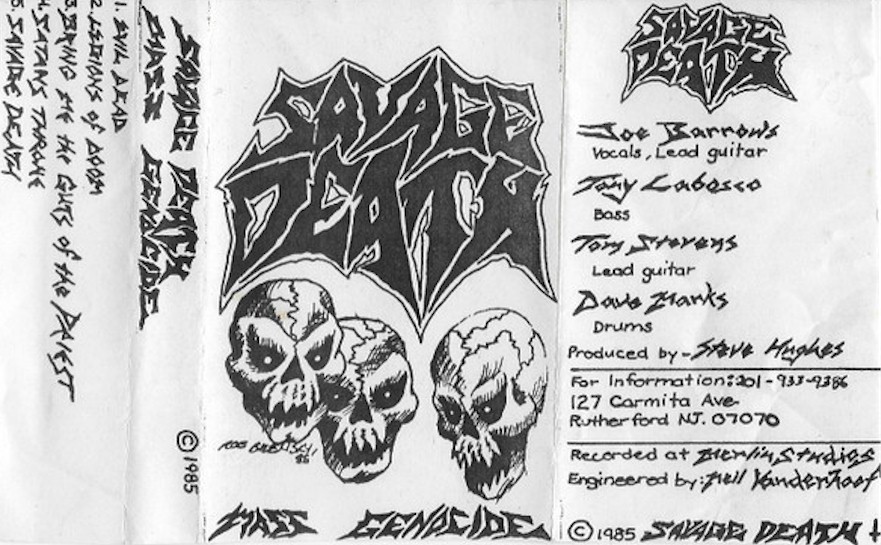 1. EVIL DEAD
2. LEGIONS of DOOM
3. BRING ME the GUTS of the PRIEST
4. SATANS THRONE
5. SAVAGE DEATH
SAVAGE DEATH
MASS GENOCIDE
©1985
SAVAGE
DEATH
85
MASS GENOCIDE
SAVAGE
DEATH
Joe Barrows
Vocals, Lead guitar
Tony Labosco
Bass
Tom Stevens
Lead guitar
Dave Marks
Drums
Produced by - Steve Hughes
For Information: 201-933-9386
127 Carmita Ave.
Rutherford NJ. 07070
Recorded at Merlin Studios
Engineered by: Neil Vanderhoof
©1985 SAVAGE DEATH